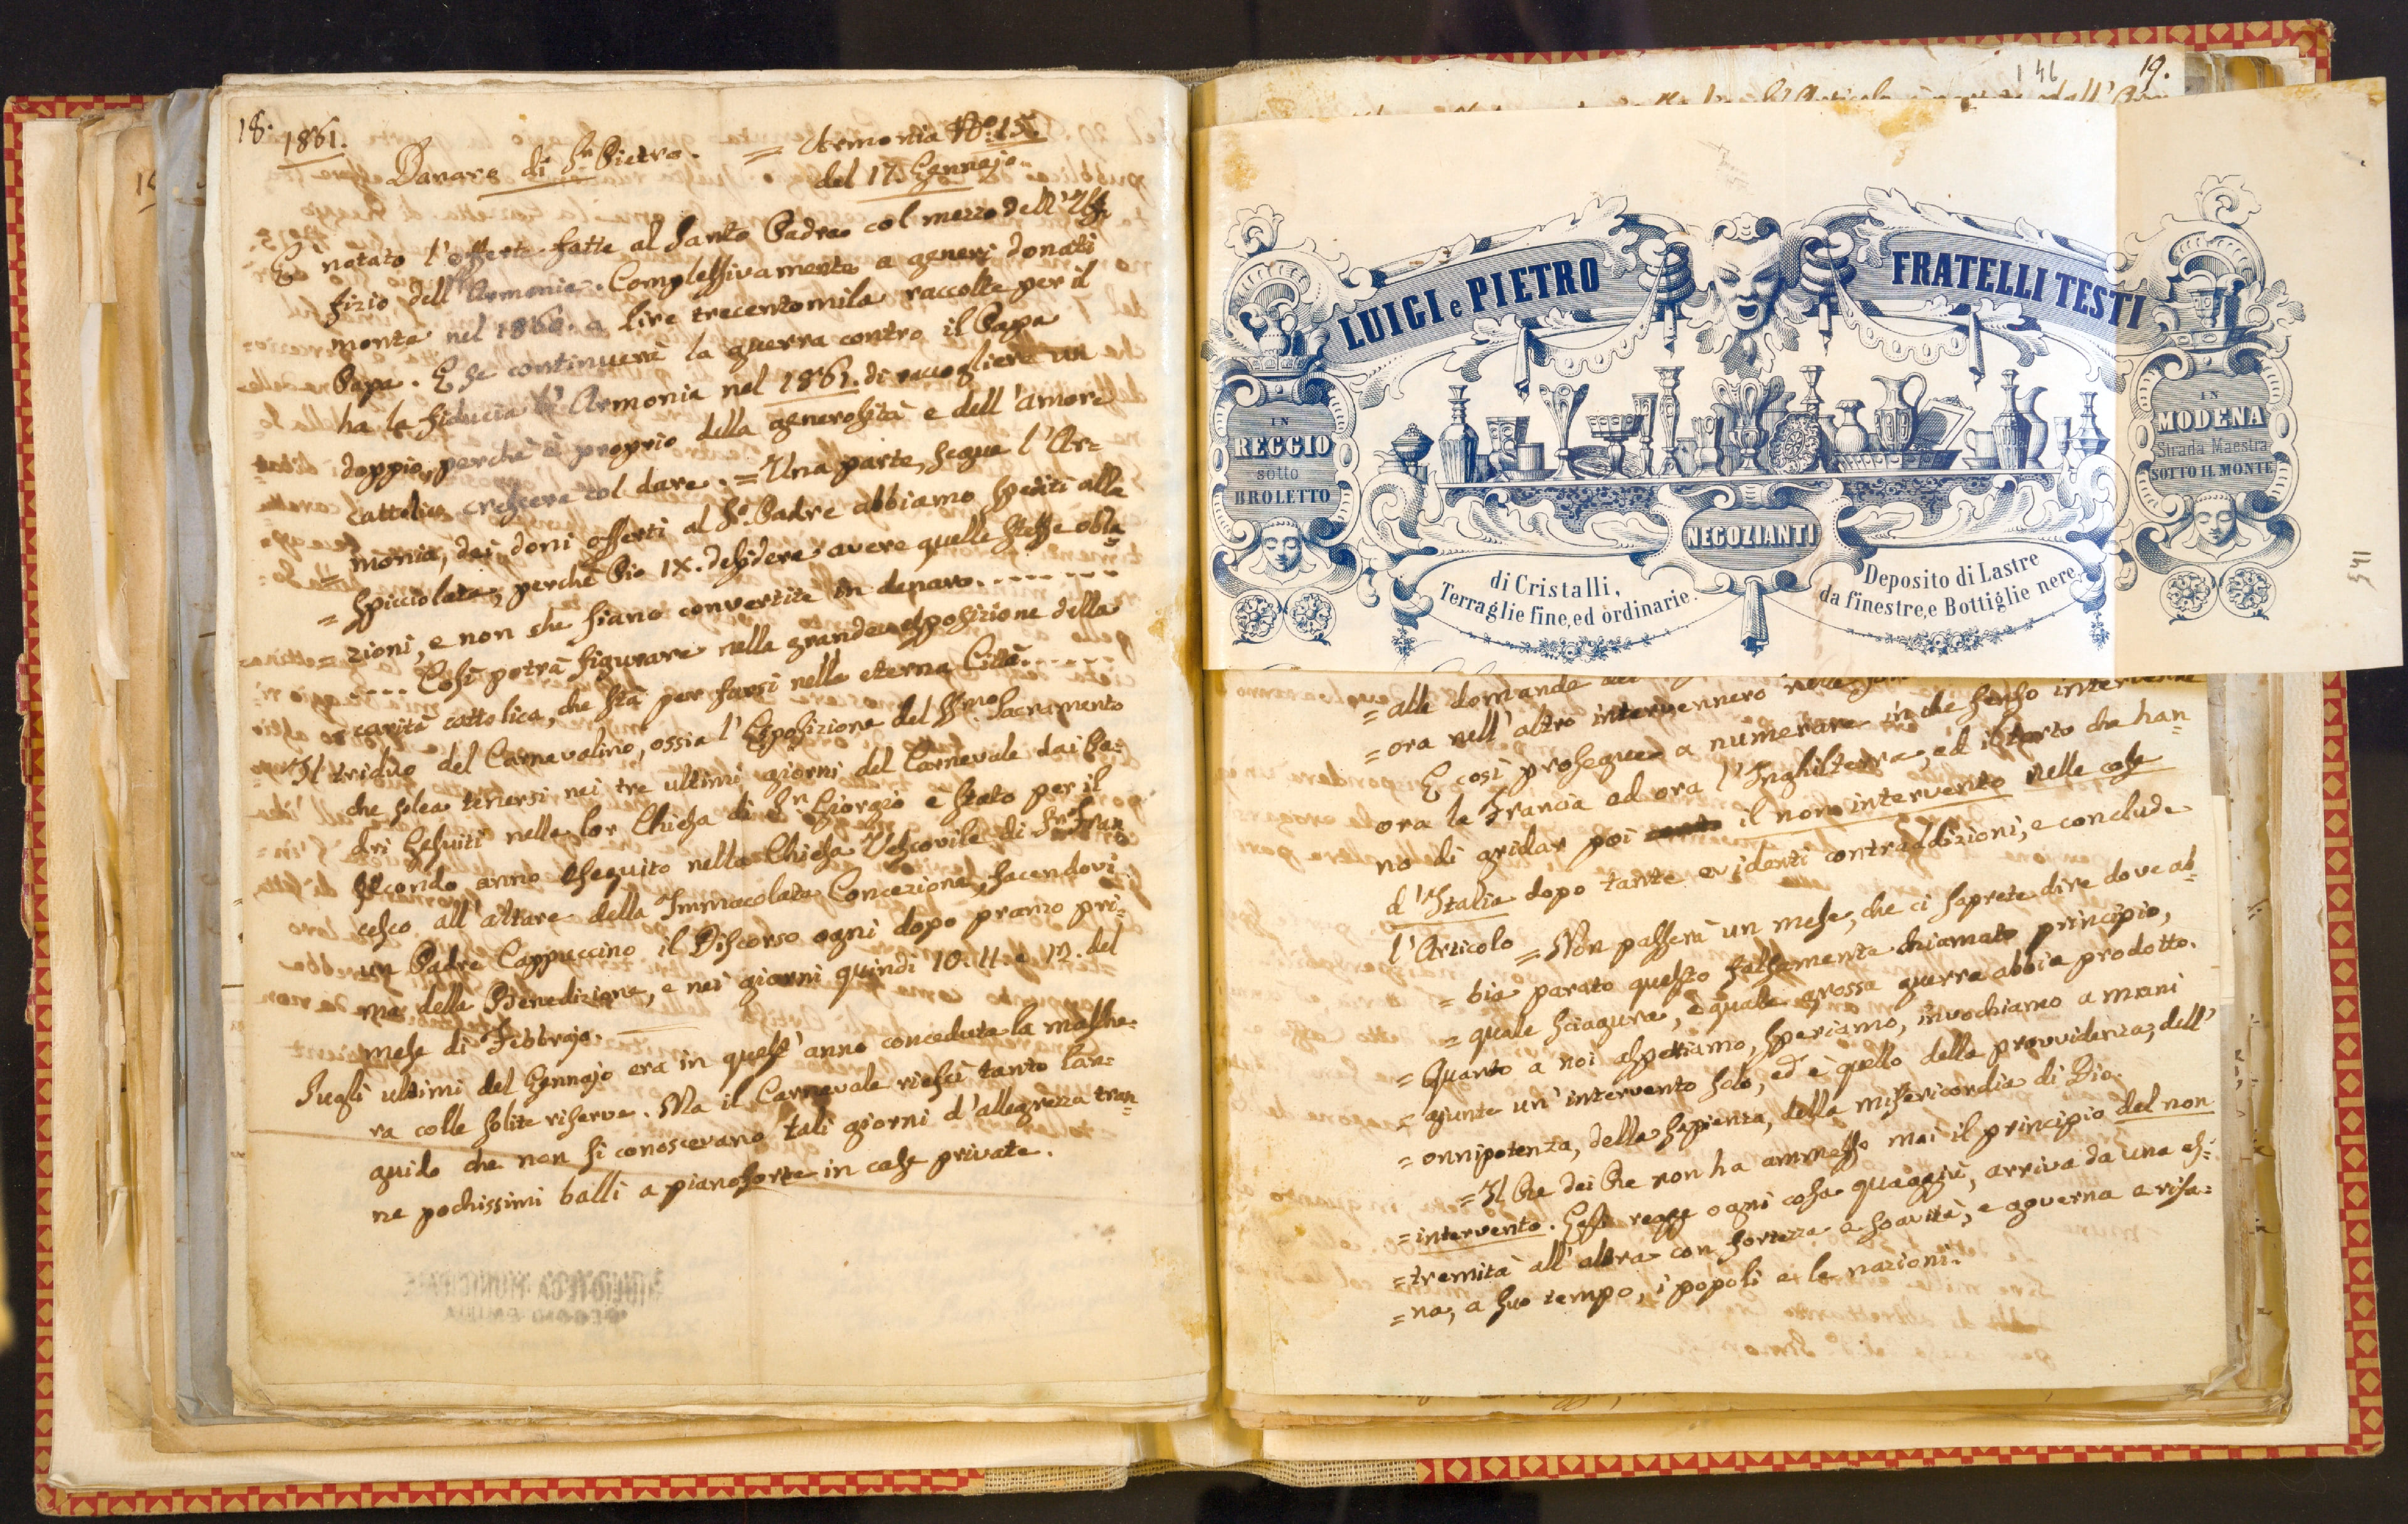 18.
1861.
Danaro di Sn Pietro. = Armonia No. 15.
del 17. Gennajo.
È notato l'offerte fatte al Santo Padre col mezzo dell'Uf-
fizio dell'Armonia. Complessivamente a generi donati
monta nel 1860. a lire trecentomila raccolte per il
Papa. E se continuerà la guerra contro il Papa
ha la fiducia l'Armonia nel 1861. di raccogliere un
doppio, perchè è proprio della generosità e dell'amore
cattolico crescere col dare. = Una parte, segue l'Ar=
= monia, dei doni offerti al So. Padre abbiamo spediti alla
= spicciolata, perchè Pio IX. desidera avere quelle stesse obla=
= zioni, e non che siano convertite in denaro. - - - - - - -
- - - - Così potrà figurare nella grande esposizione della
= carità cattolica, che stà per farsi nella eterna Città. - - - -
Il triduo del Carnevalino, ossia l'Esposizione del SSmo Sacramento
che solea tenersi nei tre ultimi giorni del Carnevale dai Pa=
dri Gesuiti nella lor Chiesa di Sn Giorgio è stato per il
secondo anno eseguito nella Chiesa Vescovile di Sn Fran
cesco all'altare della Immacolata Concezione, facendovi
un Padre Cappuccino il Discorso ogni dopo pranzo pri=
ma della Benedizione, e nei giorni quindi 10. 11. e 12. del
mese di Febbrajo.
Sugli ultimi del Gennajo era in quest'anno conceduta la masche=
ra colle solite riserve. Ma il Carnevale riescì tanto lan=
guido che non si conoscevano tali giorni d'allegrezza tran=
ne pochissimi balli a pianoforte in case private.
146
19.
LUIGI e PIETRO
FRATELLI TESTI
IN
REGGIO
sotto
BROLETTO
IN
MODENA
Strada Maestra
SOTTO IL MONTE
NEGOZIANTI
di Cristalli,
Terraglie fine, ed ordinarie.
Deposito di Lastre
da finestre, e Bottiglie nere
541
= alle domande
= ora nell'altro intervennero
E così prosegue a numerare in che senso intervenne
ora la Francia ed ora l'Inghilterra, ed il torto che han=
no di gridar poi il non intervento nelle cose
d'Italia dopo tante evidenti contraddizioni, e conclude
l'Articolo = Non passerà un mese, che ci saprete dire dove ab=
= bia parato questo falsamente chiamato principio,
= quale sciagura, e quale grossa guerra abbia prodotto.
= Quanto a noi aspettiamo, speriamo, invochiamo a mani
= giunte un'intervento solo, ed è quello della provvidenza, dell'
= onnipotenza, della sapienza, della misericordia di Dio.
= Il Re dei Re non ha ammesso mai il principio del non
= intervento. Egli regge ogni cosa quaggiù, arriva da una es=
= tremità all'altra con fortezza e soavità, e governa e risa=
= na, a suo tempo, i popoli e le nazioni.